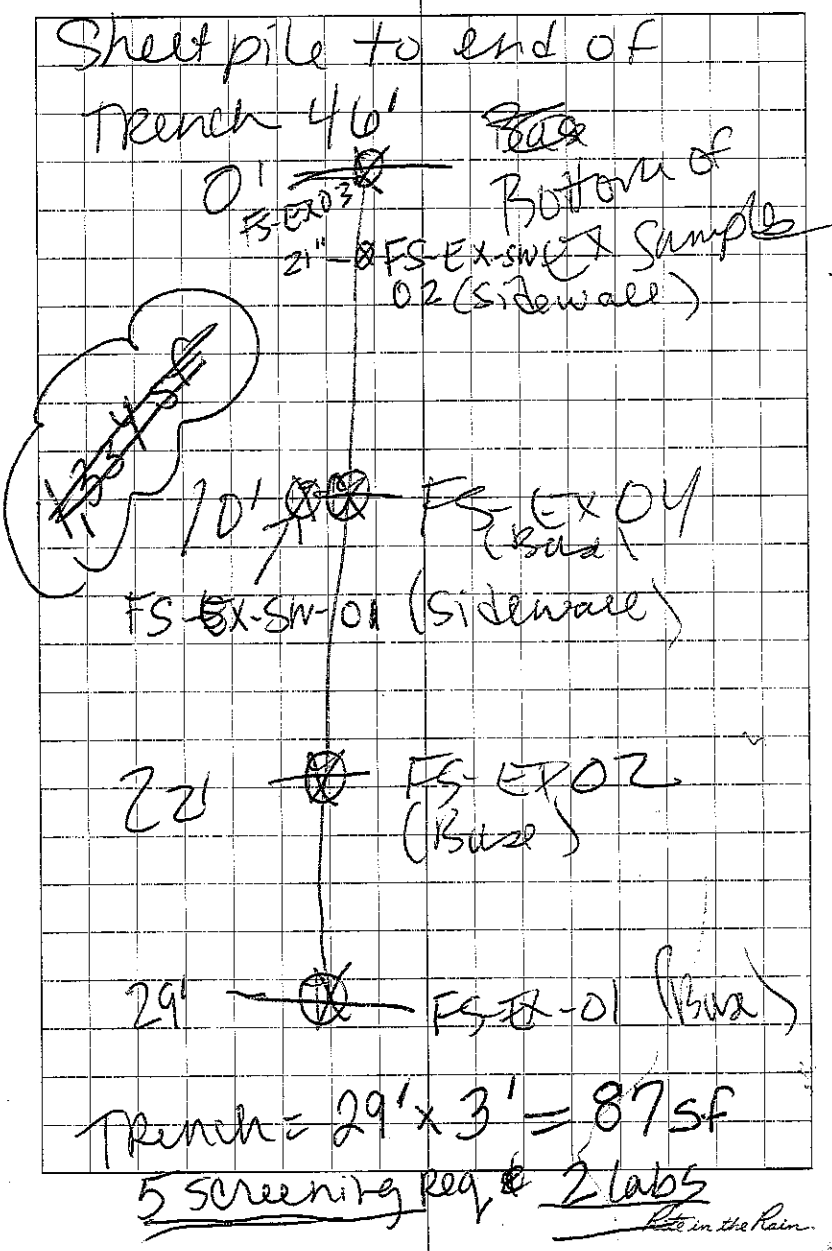 Sheet pile to end of
Trench 46'
0'
Bottom of
EX Samples
FS-EX03
21" - FS-EX-SW
02 (Sidewall)
10' FS-EX04
(Base)
FS-EX-SW-01 (Sidewall)
22' FS-EX02
(Base)
29' FS-EX-01 (Base)
Trench = 29' x 3' = 87 sf
5 screening Req & 2 labs
Rite in the Rain.